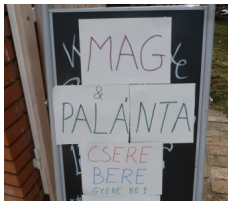 MAG
&
PALÁNTA
CSERE
BERE
GYERE BE!